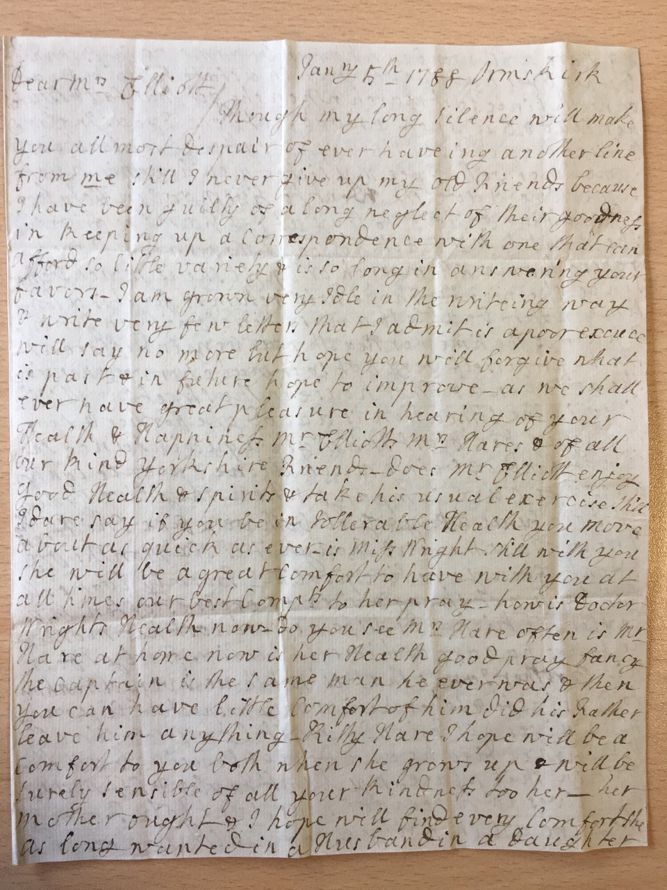 Janry 5th 1788 Ormskirk
Dear Mrs Elliott
Though my long silence will make
you all most despair of ever haveing another line
from me still I never give up my old Friends because
I have been guilty of a long neglect of their goodness
in Keeping up a Correspondence with one that can
afford so little variety & is so long in answering your
favors - I am grown very Idle in the writeing way
& write very few letters that I admit is a poor excuce
will say no more but hope you will forgive what
is past & in future hope to improve - as we shall
ever have great pleasure in hearing of your
Health & Happiness Mr Elliotts Mrs Hares & of all
our Kind Yorkshire Friends - does Mr Elliott enjoy
good Health & spirits & take his usual exercise still
I dare say if you be in tollerable Health you move
about as quick as ever - is Miss Wright still with you
she will be a great Comfort to have with you at
all times our best Compts to her pray - how is Doctor
Wrights Health now - do you see Mrs Hare often is Mr
Hare at home now is her Health good pray fancy
the Captain is the same man he ever was & then
you can have little Comfort of him did his Father
leave him anything - Kitty Hare I hope will be a
Comfort to you both when she grows up & will be
surely sensible of all your Kindness too her - her
mother ought & I hope will find every Comfort she
as long wanted in a Husband in a Daughter